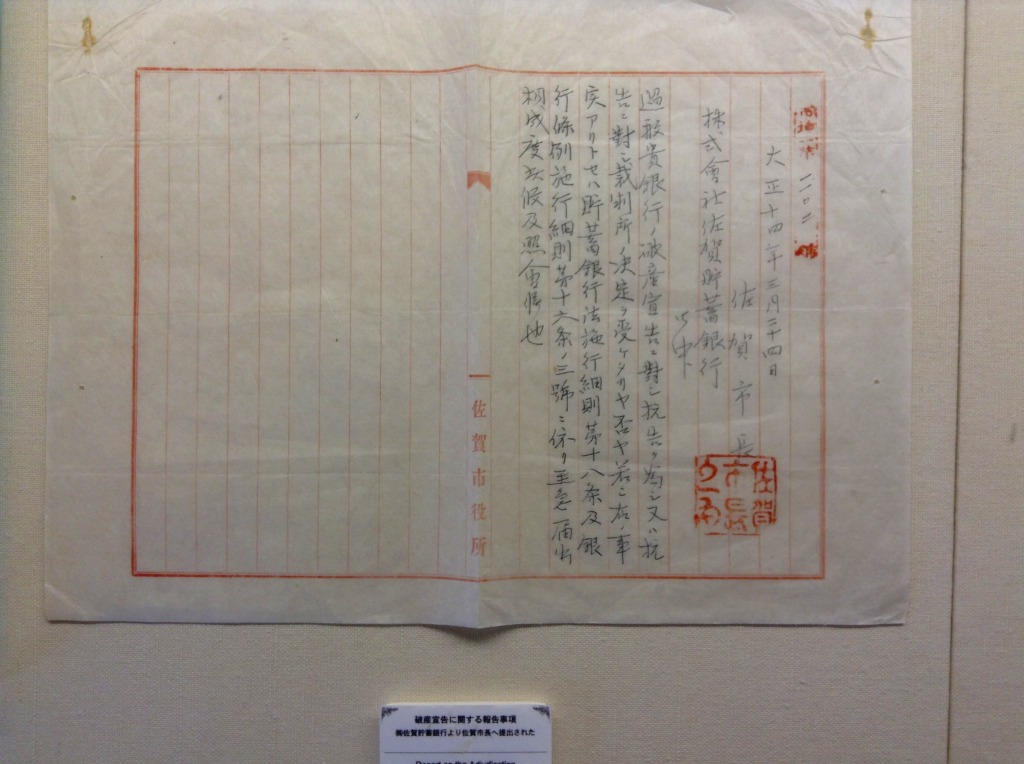 二〇二 號
大正十四年三月二十四日
佐賀市長
株式會社佐賀貯蓄銀行
御中
過般貴銀行ノ破産宣告ニ對シ抗告ヲ為シ又ハ抗
告ニ對シ裁判所ノ決定ヲ受ケタリヤ否ヤ若シ右ノ事
実アリトセハ貯蓄銀行法施行細則第十八条及銀
行條例施行細則第十六条ノ三號ニ依リ至急届出
相成度此段及照會候也
佐賀市役所
破産宣告に関する報告事項
㈱佐賀貯蓄銀行より佐賀市長へ提出された
Report on the Adjudication